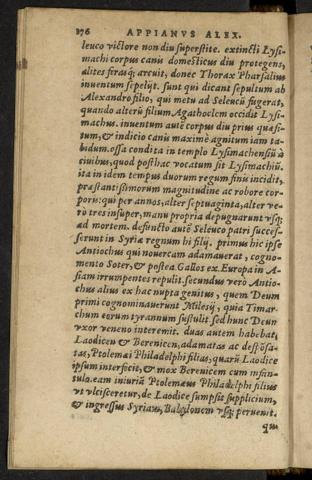 176 APPIANVS ALEX.
leuco victore non diu superstite. extincti Lysi-
machi corpus canis domesticus diu protegens,
alites firasq; arcuit, donec Thorax Pharsalius
inuentum sepelijt. sunt qui dicant sepultum ab
Alexandro filio, qui metu ad Seleucū fugerat,
quando alterū filium Agathoclem occidit Lysi-
machus. inuentum autē corpus diu prius quæsi-
tum, & indicio canis maximè agnitum iam ta-
bidum. ossa condita in templo Lysimachensiū à
ciuibus, quod posthac vocatum sit Lysimachiū.
ita in idem tempus duorum regum finis incidit,
præstantissimorum magnitudine ac robore cor-
poris: qui per annos, alter septuaginta, alter ve-
rò tres insuper, manu propria depugnarunt vsq;
ad mortem. defuncto autē Seleuco patri succes-
serunt in Syriæ regnum hi filij. primus hic ipse
Antiochus qui nouercam adamauerat, cogno-
mento Soter, & postea Gallos ex Europa in A-
siam irrumpentes repulit. secundus verò Antio-
chus alius ex hac nupta genitus, quem Deum
primi cognominauerunt Milesij, quia Timar-
chum eorum tyrannum sustulit. sed hunc Deum
vxor veneno interemit. duas autem habebat,
Laodicen & Berenicen, adamatas ac despōsa-
tas, Ptolemæi Philadelphi filias, quarū Laodice
ipsum interficit, & mox Berenicem cum infan-
tulo. eam iniuriā Ptolemæus Philadelphi filius
vt vlcisceretur, de Laodice sumpsit supplicium,
& ingressus Syriam, Babylonem vsq; peruenit.